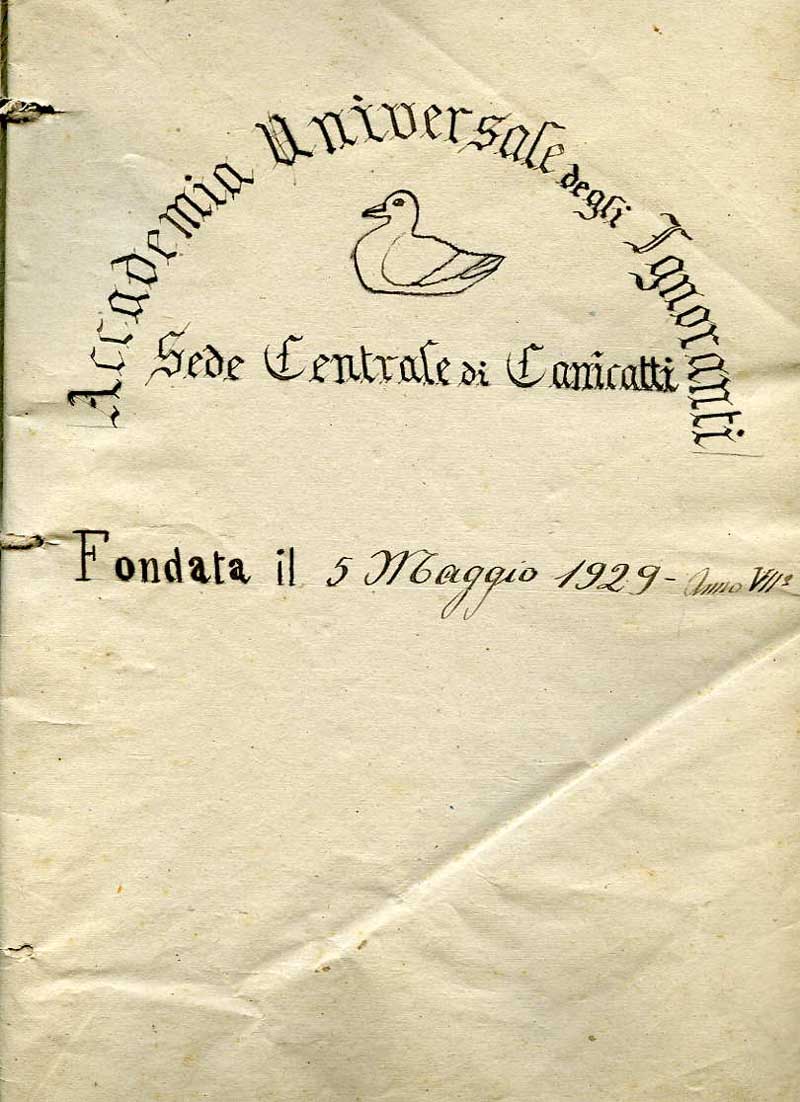 Accademia Universale degli Ignoranti
Sede Centrale di Canicatti
Fondata il 5 Maggio 1929 - Anno VIIº